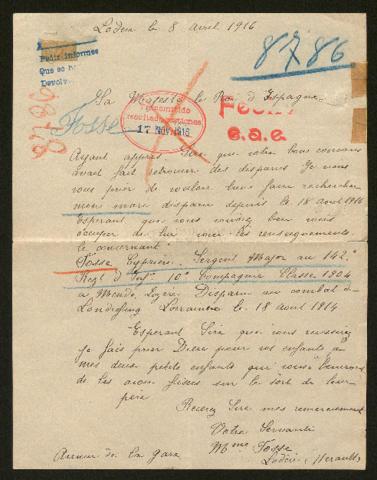 Lodève le 8 avril 1916
Pedir informes
Que se ha
Devolver
8786
Sa Majesté le Roi d'Espagne
Fosse
17 NOV 1916
e.a.e.
Ayant appris Sire que votre bon concours
avait fait retrouver des disparus Je viens
vous prier de vouloir bien faire rechercher
mon mari disparu depuis le 18 août 1914
Esperant que vous voudrez bien vous
occuper de lui voici les renseignements
le concernant
Fosse Cyprien Sergent Major au 142e
Regt d'Inf. 10e Compagnie Classe 1904
à Mende Lozère Disparu au combat de
Lorraine le 18 août 1914
Esperant Sire que vous
je fais prier Dieu pour vos enfants a
mes deux petits enfants qui vous
de les avoir fixés sur le sort de leur
père
Recevez Sire mes remerciements
Votre Servante
Mme Fosse
Avenue de la gare
Lodève (Herault)